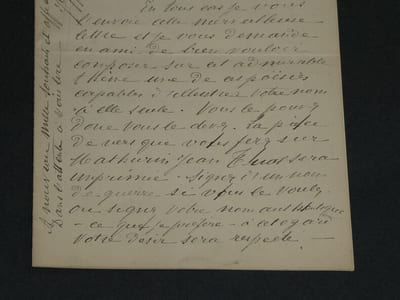 En tous cas je vous
l'envoie cette merveilleuse
lettre et je vous demande
en ami de bien vouloir
composer sur cet admirable
thème une de ces poésies
capables d'illustrer votre nom
à elle seule. Vous le pouvez
donc vous le devez. La pièce
de vers que vous ferez sur
Mathurin Jean sera
imprimée. Signez d'un nom
de guerre si vous le voulez
ou signez votre nom authentique
- ce que je préfère - à cet égard
votre désir sera respecté. -
mille souhaits et
Dans l'attente à vous lire